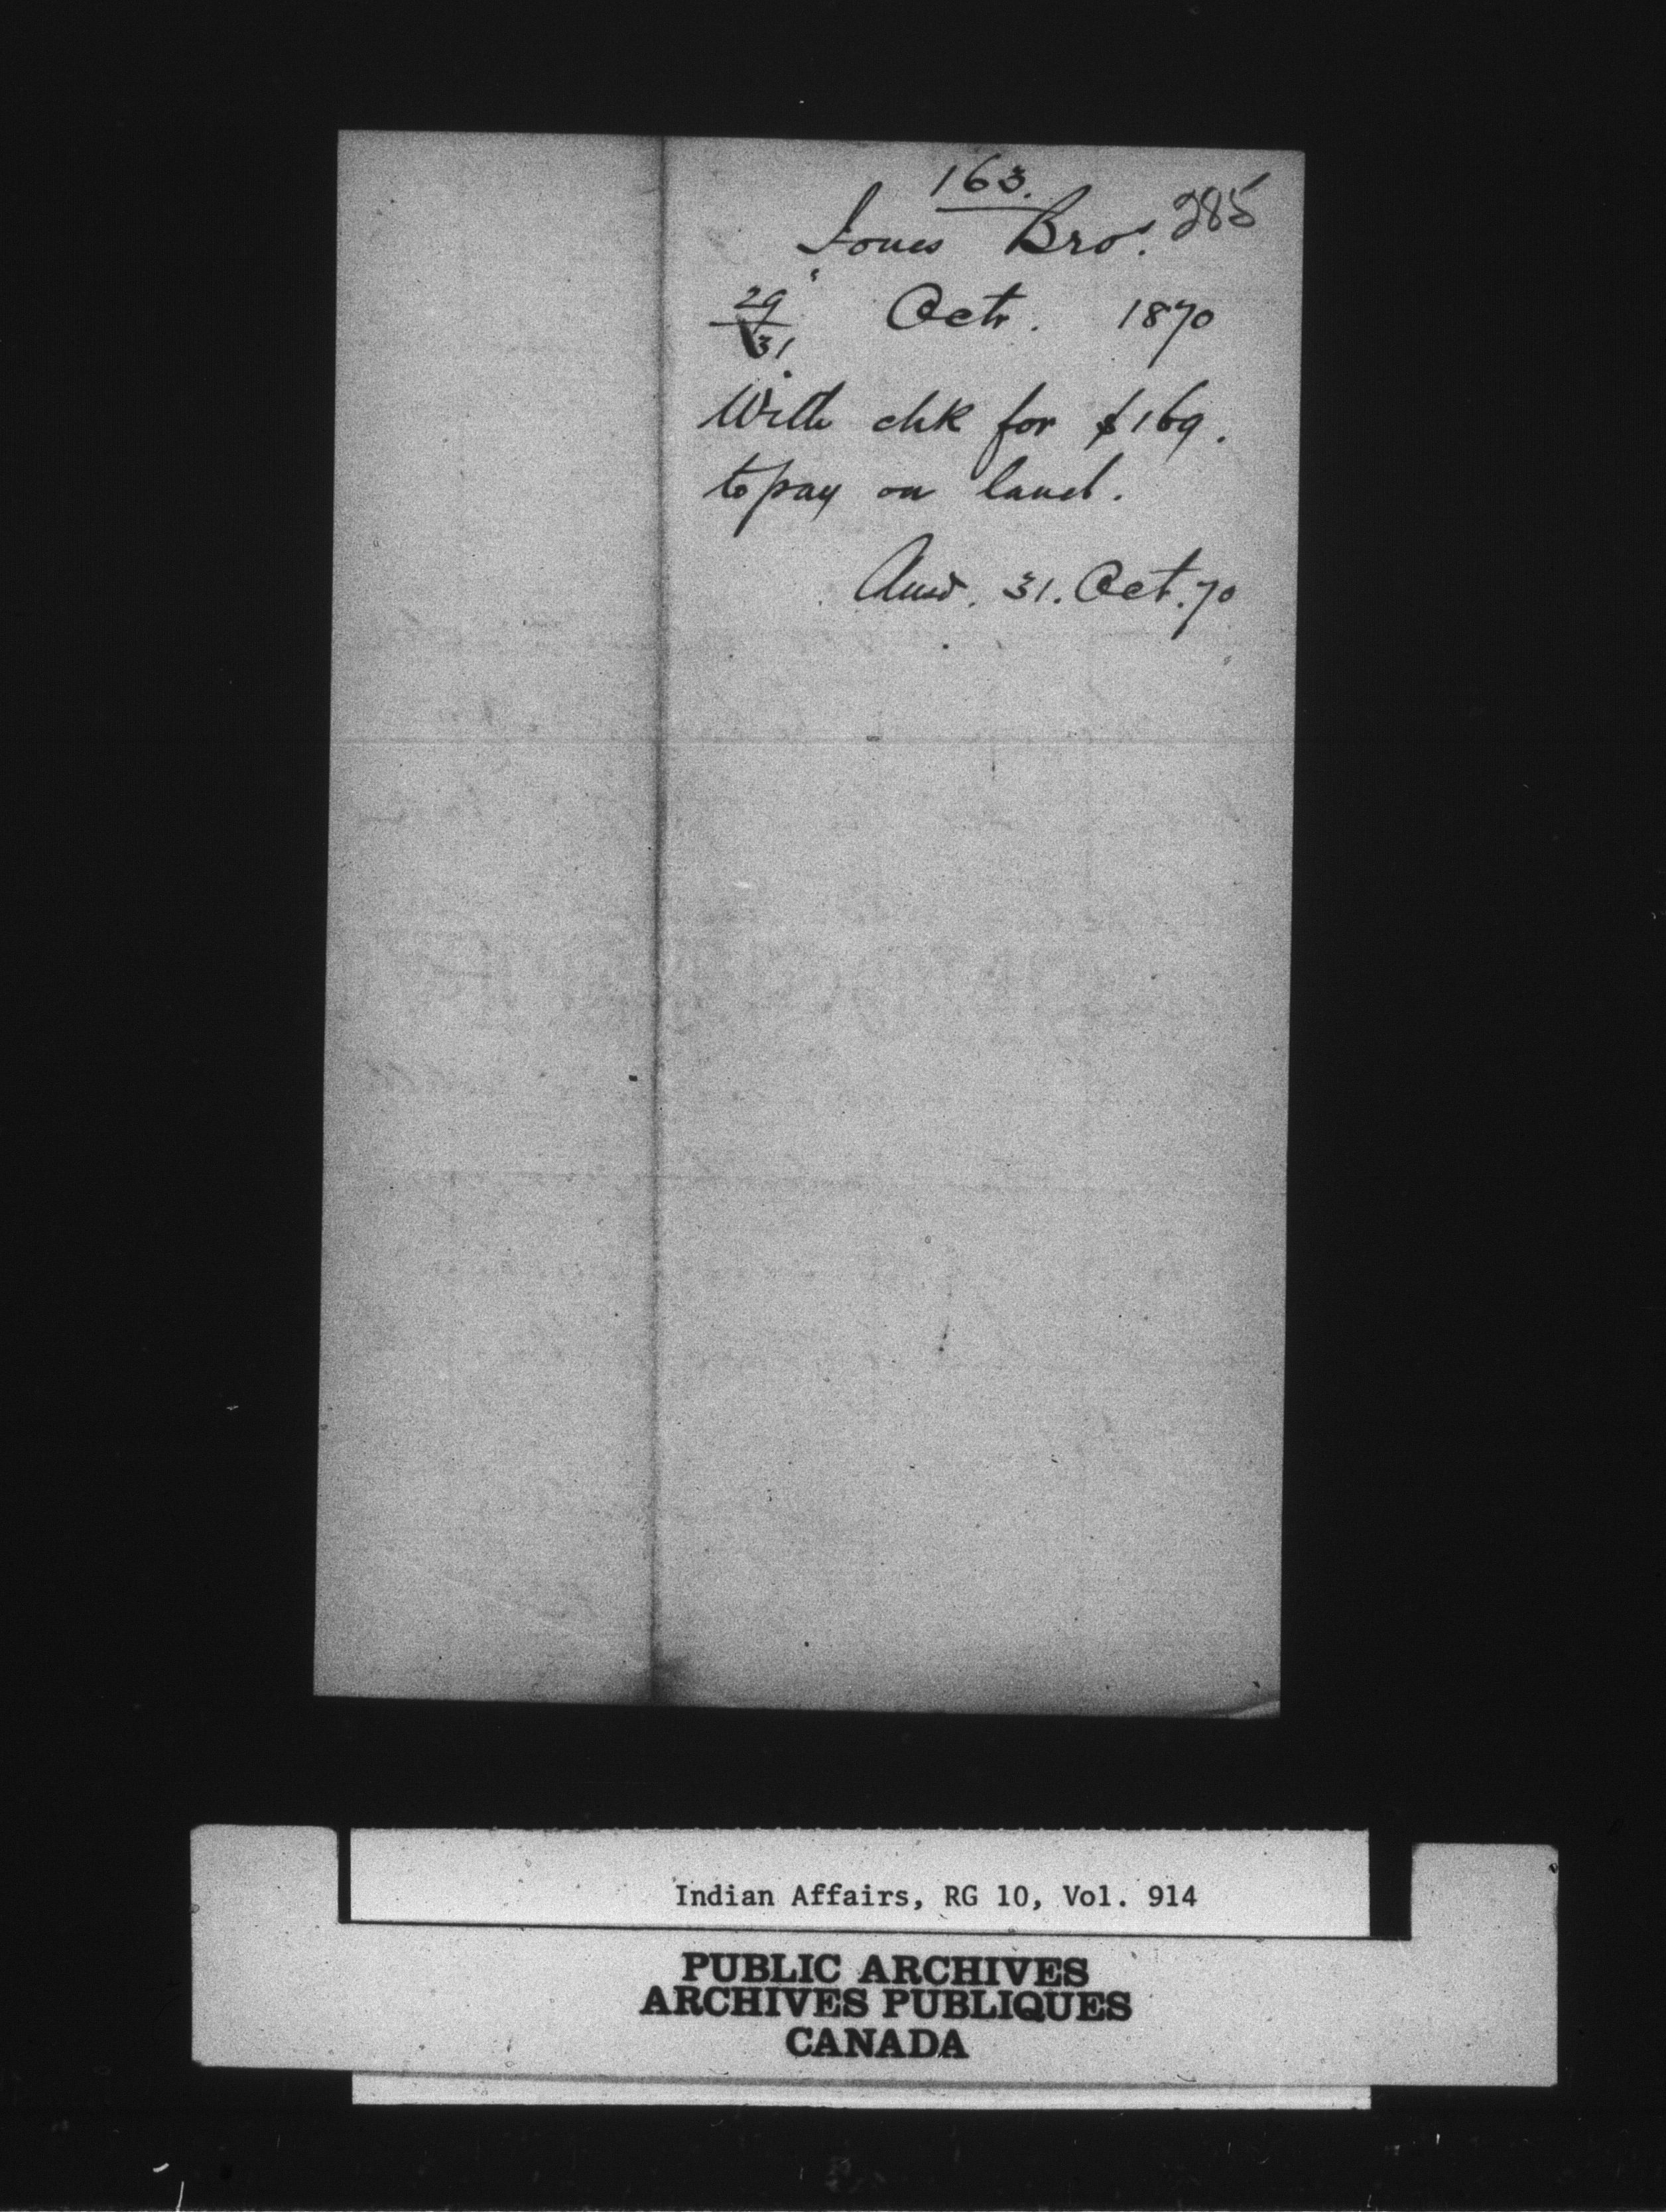 163.
285
Jones Bros.
29/31 Octr. 1870
With chk for $169.
to pay on land.
Answd. 31. Oct. 70
Indian Affairs, RG 10, Vol. 914
PUBLIC ARCHIVES
ARCHIVES PUBLIQUES
CANADA